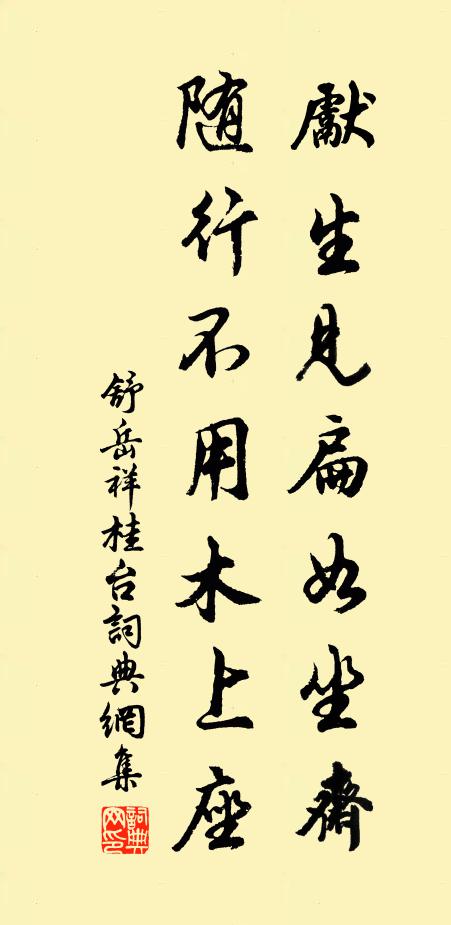 獻生見扁如坐齋
随行不用木上座
舒岳祥桂台詞典網集
詞典网印